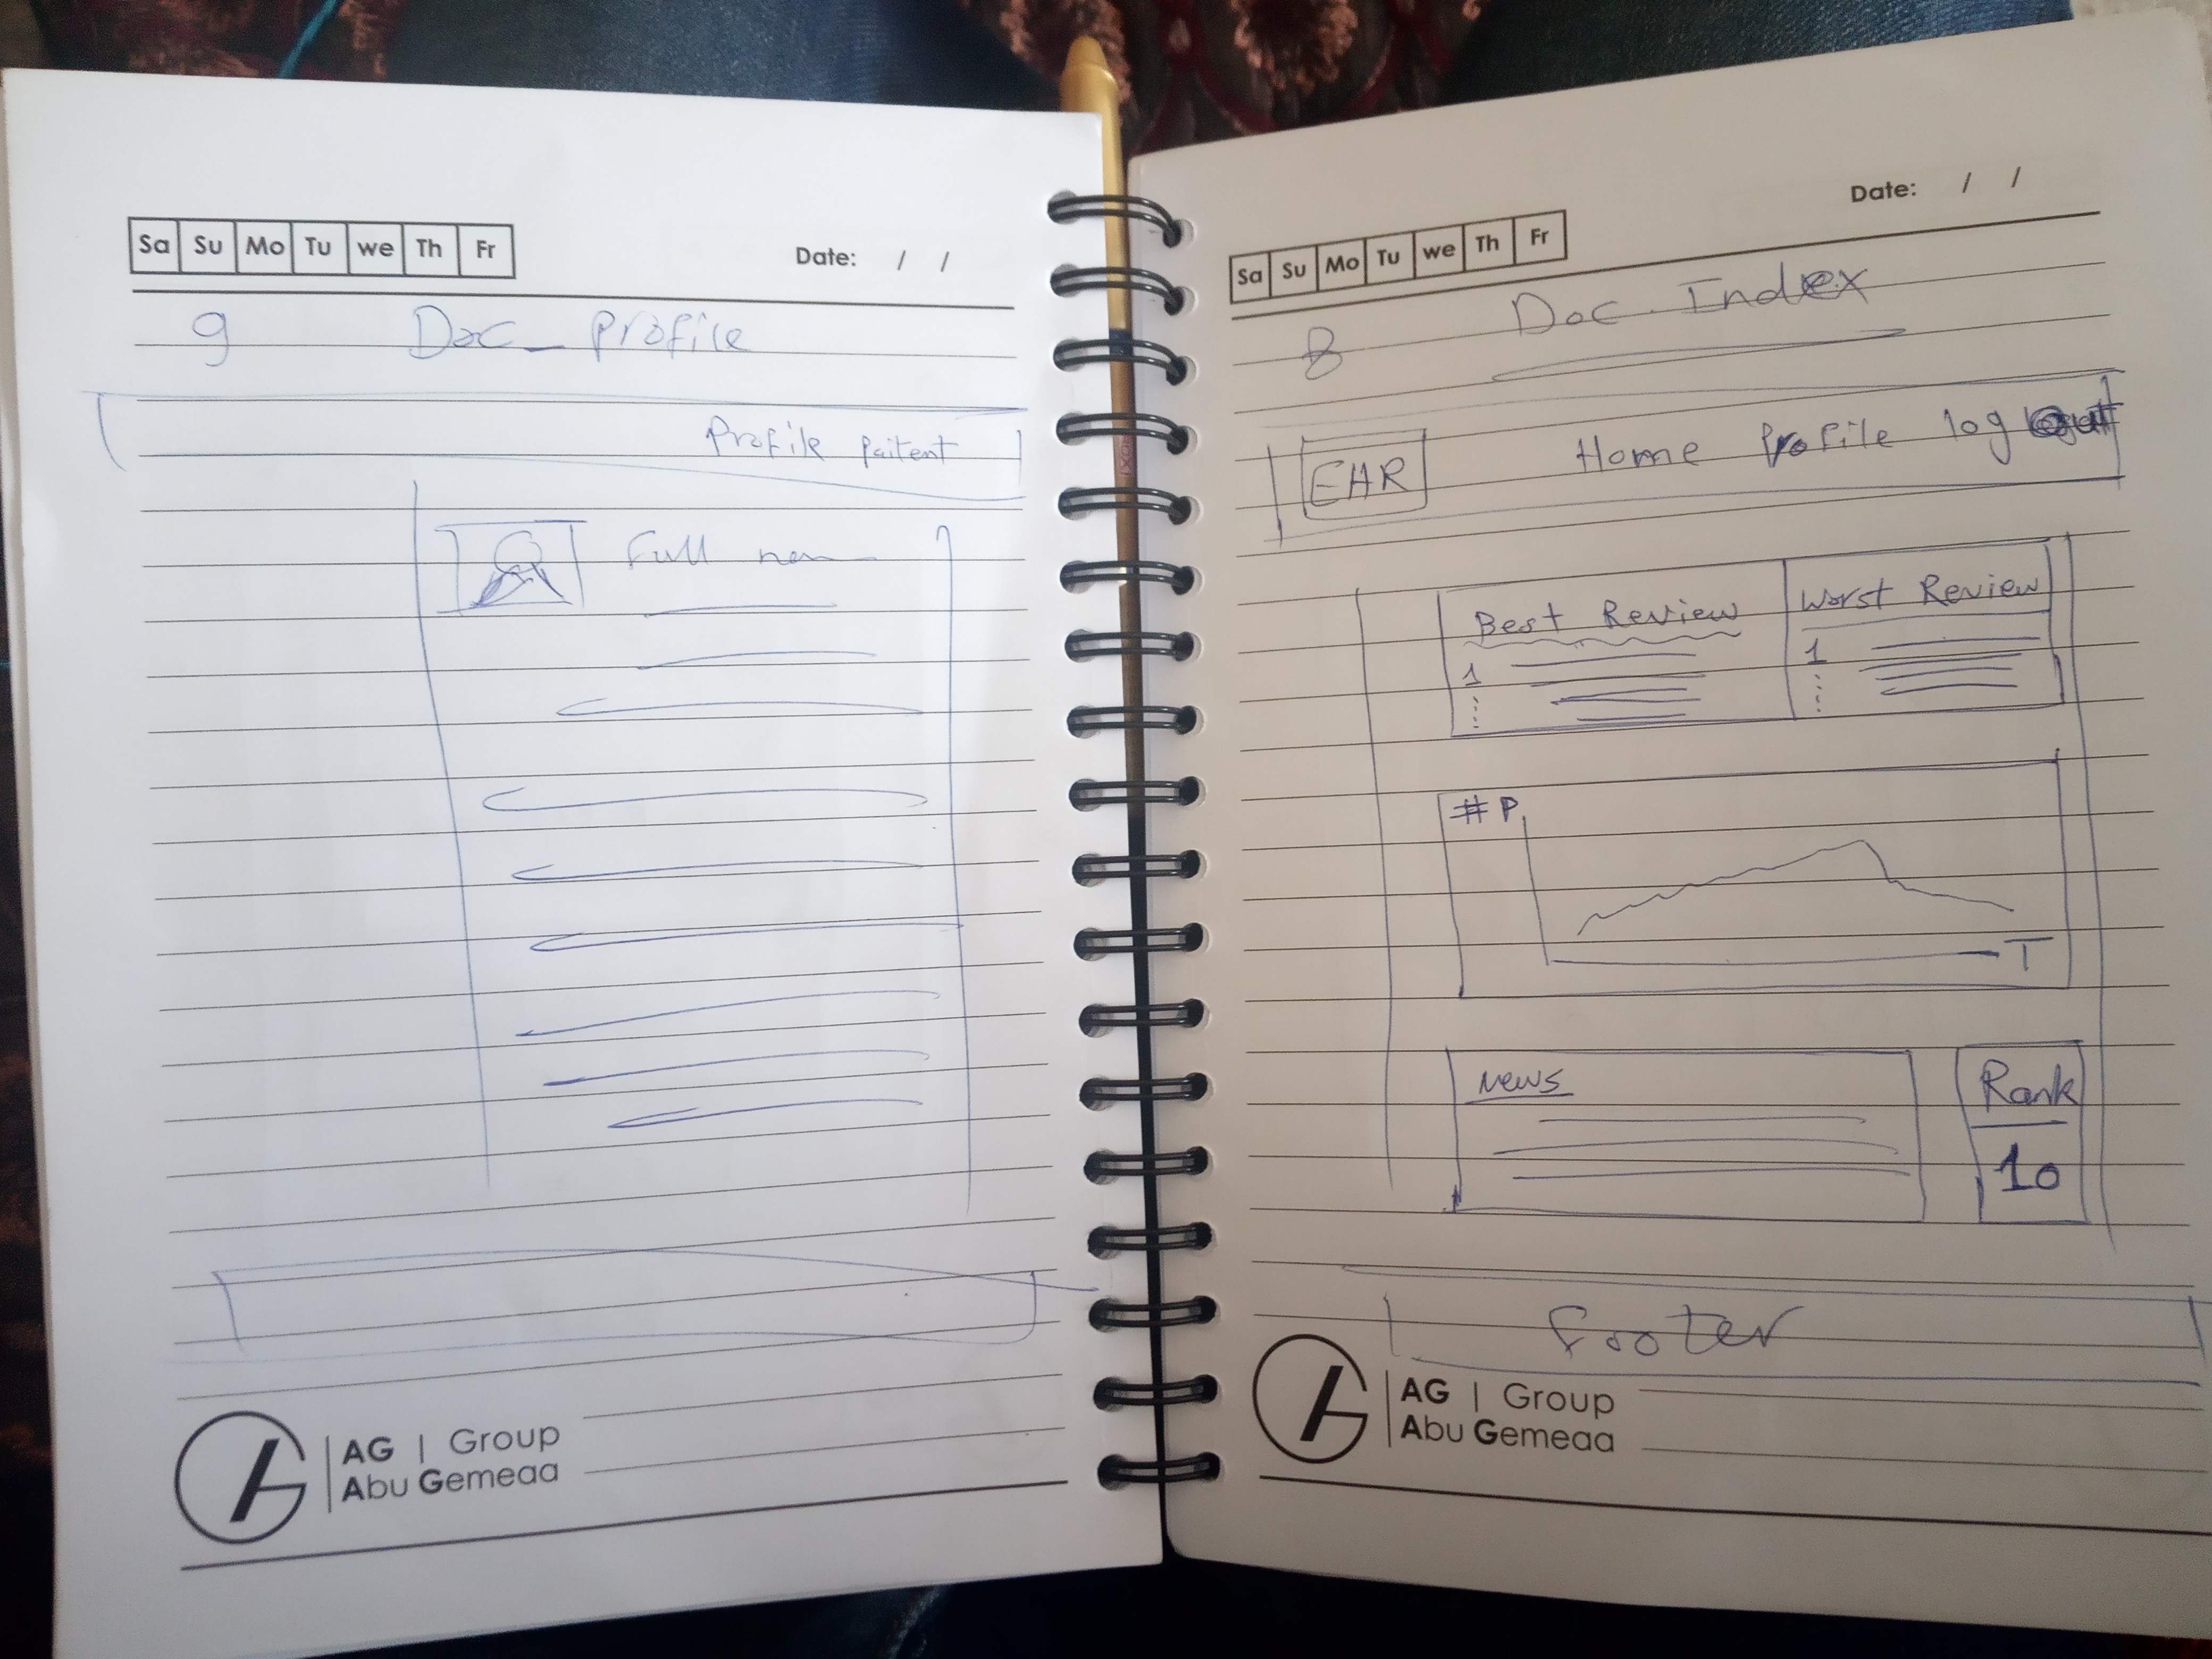 Sa Su Mo Tu we Th Fr
Date: / /
9 Doc_ Profile
Profile paitent
Full
AG | Group
Abu Gemeaa
Date: / /
Sa Su Mo Tu we Th Fr
8 Doc. Index
EHR Home Profile log out
Best Review Worst Review
1 1
# P
T
News Rank
10
Footer
AG | Group
Abu Gemeaa